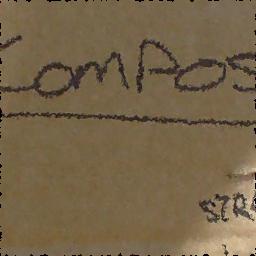 COMPOS
STR